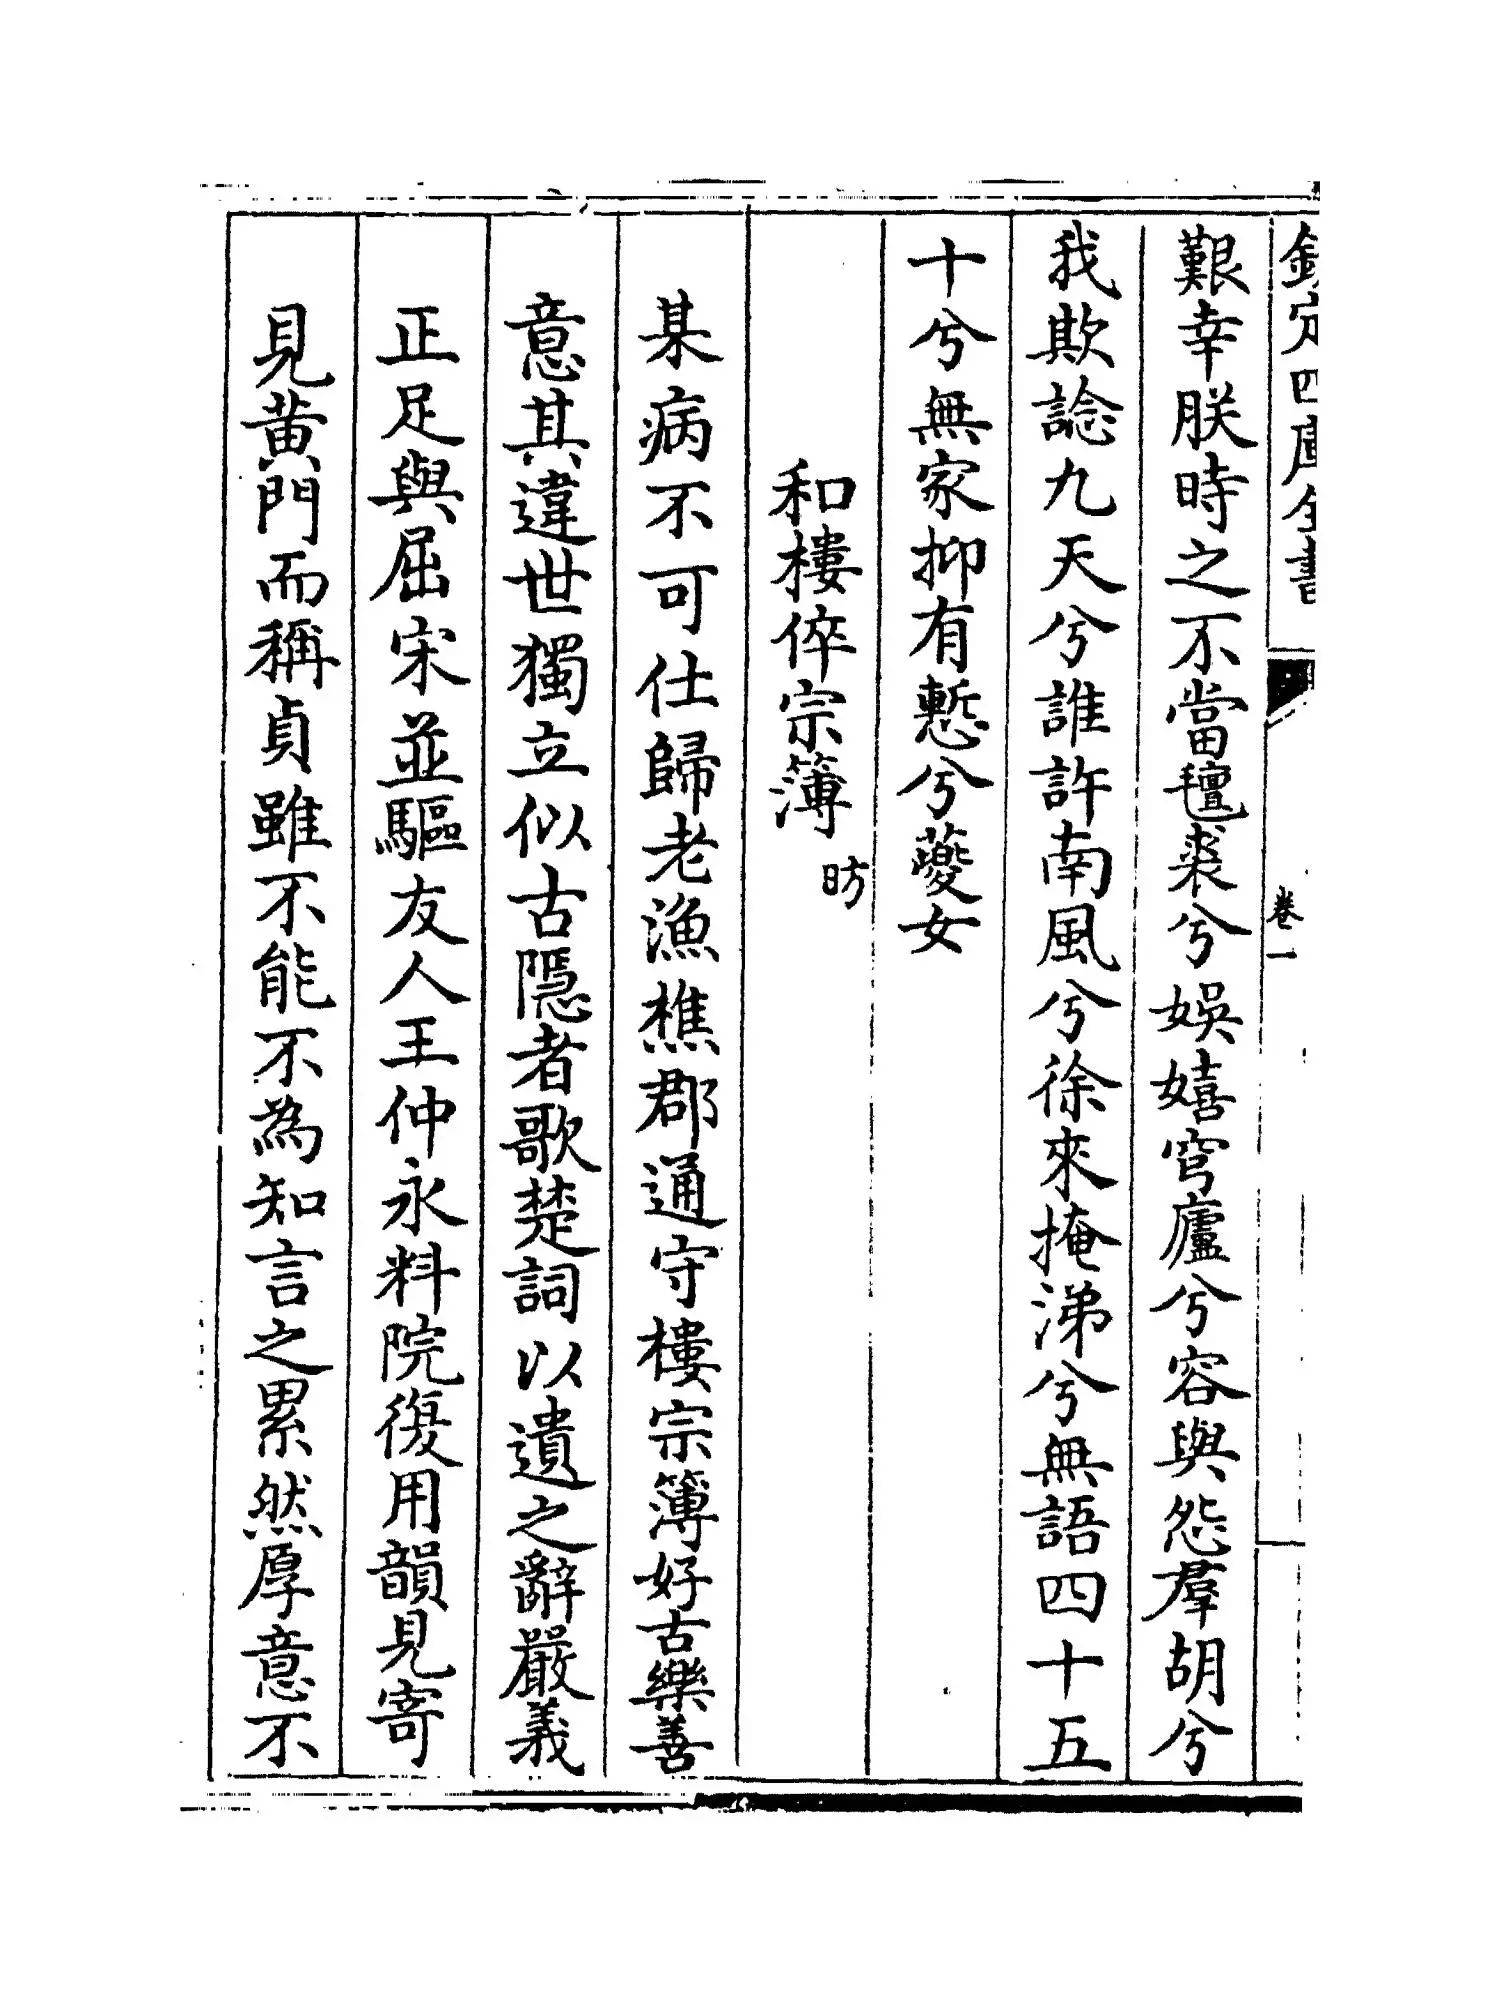 欽定四庫全書
卷一
艱幸朕時之不當氊裘兮娯嬉穹廬兮容與怨羣胡兮
我欺諗九天兮誰許南風兮徐來掩涕兮無語四十五
十兮無家抑有慙兮蘷女
和樓倅宗簿
昉
某病不可仕歸老漁樵郡通守樓宗簿好古樂善
意其違世獨立似古隱者歌楚詞以遺之辭嚴義
正足與屈宋並驅友人王仲永料院復用韻見寄
見黄門而稱貞雖不能不為知言之累然厚意不